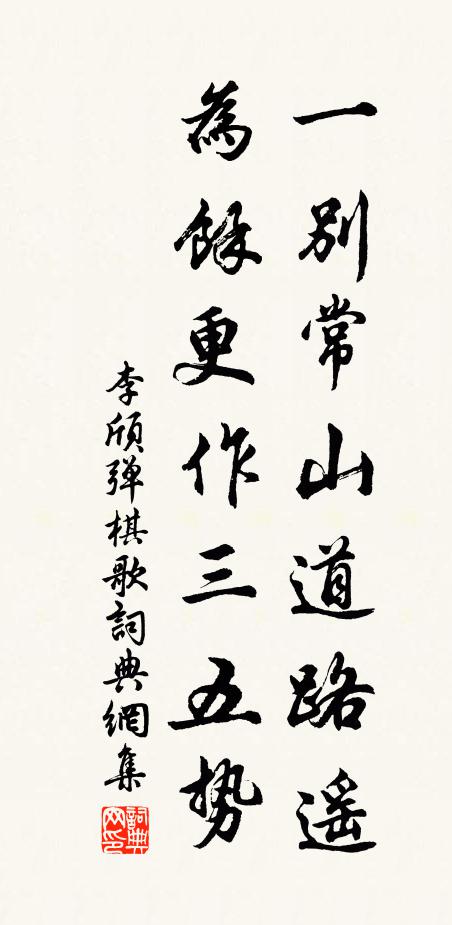 一別常山道路遥
為餘更作三五勢
李頎彈棋歌詞典網集
詞典網印